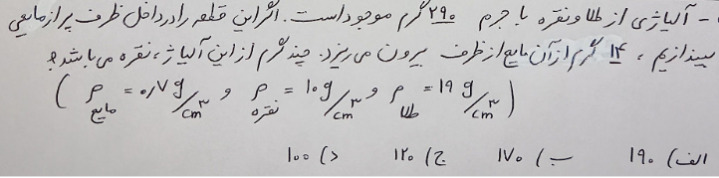 - آلیاژی از طلا و نقره با جرم ۲۹۰ گرم موجود است. اگر این قطعه را در داخل ظرف پر از مایعی
بیندازیم، ۱۴ گرم از آن مایع از ظرف بیرون می‌ریزد. چند گرم از این آلیاژ، نقره می‌باشد؟
( ρ مایع = ۰/۷ g/cm³ و ρ نقره = ۱۰ g/cm³ و ρ طلا = ۱۹ g/cm³ )
الف) ۱۹۰ ب) ۱۷۰ ج) ۱۲۰ د) ۱۰۰